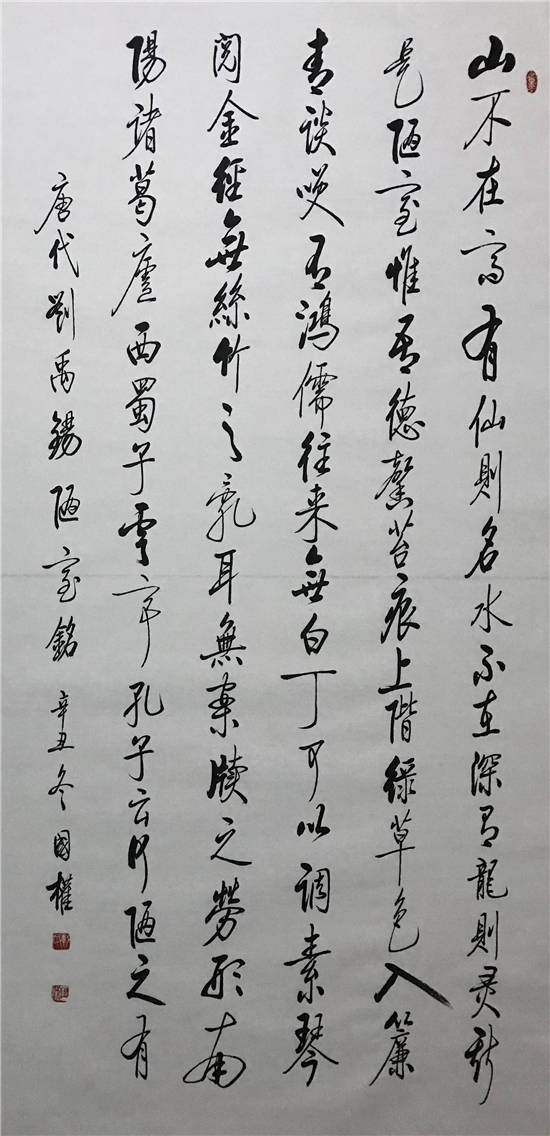 山不在高有仙則名水不在深有龍則灵斯
是陋室惟吾德馨苔痕上階綠草色入簾
青談笑有鴻儒往来無白丁可以調素琴
閱金經無絲竹之亂耳無案牘之勞形南
陽諸葛廬西蜀子雲亭孔子云何陋之有
唐代劉禹錫陋室銘 辛丑冬國權